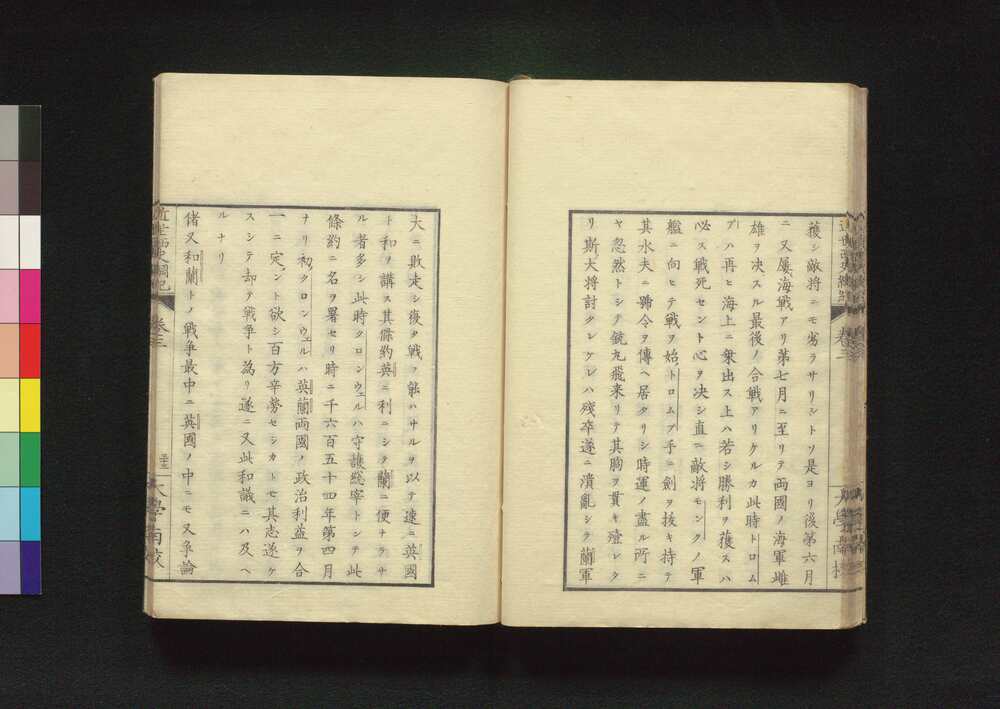 獲シ敵将ニモ劣ラサリシトソ是ヨリ後第六月
ニ又屢海戦アリ第七月ニ至リテ両國ノ海軍雌
雄ヲ決スル最後ノ合戦アリケルカ此時トロム
プハ再ヒ海上ニ乗出ス上ハ若シ勝利ヲ獲スハ
必ス戦死セント心ヲ決シ直ニ敵将モンクノ軍
艦ニ向ヒテ戦ヲ始トロムプ手ニ劍ヲ抜キ持テ
其水夫ニ號令ヲ傳ヘ居タリシ時運ノ盡ル所ニ
ヤ忽然トシテ銃丸飛来リテ其胸ヲ貫キ殪レタ
リ斯大将討タレケレハ残卒遂ニ潰亂シテ蘭軍
近世西史綱紀 卷三
大學南校
大ニ敗走シ復タ戦フ能ハサルヲ以テ速ニ英國
ト和ヲ講ス其條約英ニ利ニシテ蘭ニ便ナラサ
ル者多シ此時クロンウェルハ守護総宰トシテ此
條約ニ名ヲ署セリ時ニ千六百五十四年第四月
ナリ初クロンウェルハ英蘭両國ノ政治利益ヲ合
一ニ定ント欲シ百方辛勞セシカトモ其志遂ケ
スシテ却テ戦争ト為リ遂ニ又此和議ニハ及ヘ
ルナリ
偖又和蘭トノ戦争最中ニ英國ノ中ニモ又争論
近世西史綱紀 卷三
大學南校